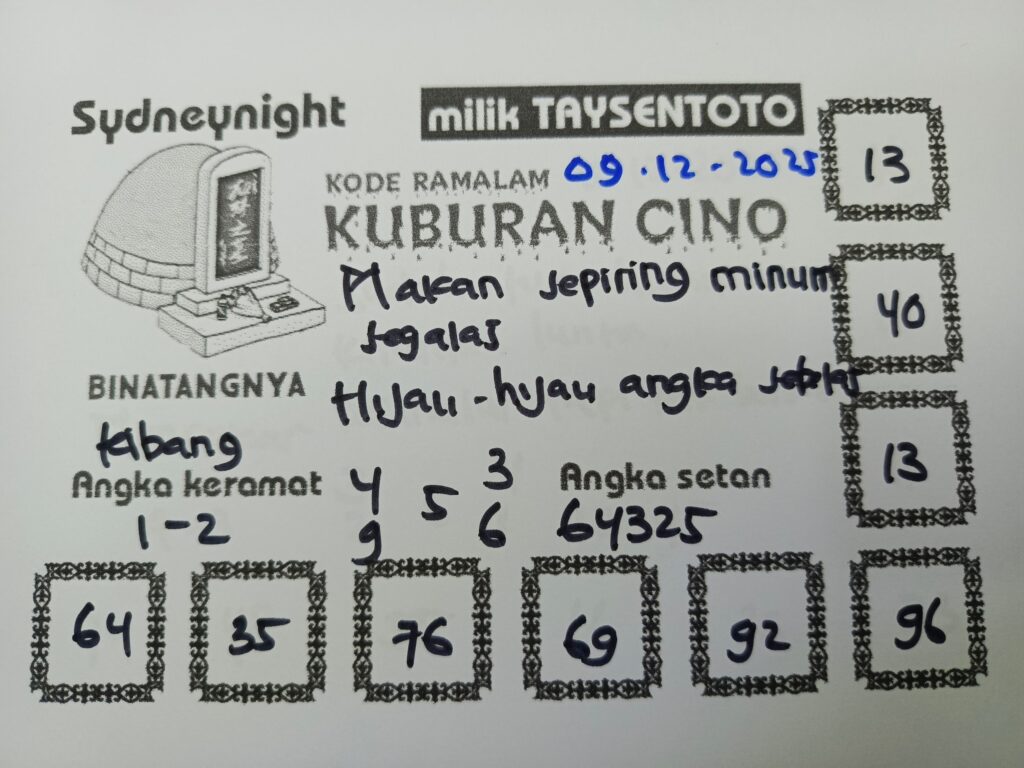 Sydneynight
milik TAYSENTOTO
KODE RAMALAM 09.12-2025
KUBURAN CINO
13
Makan sepiring minum
segalas
40
BINATANGNYA
Hijau-hijau angka
13
Angka keramat
1-2
4 5 3
9 6
Angka setan
64325
64 35 76 69 92 96